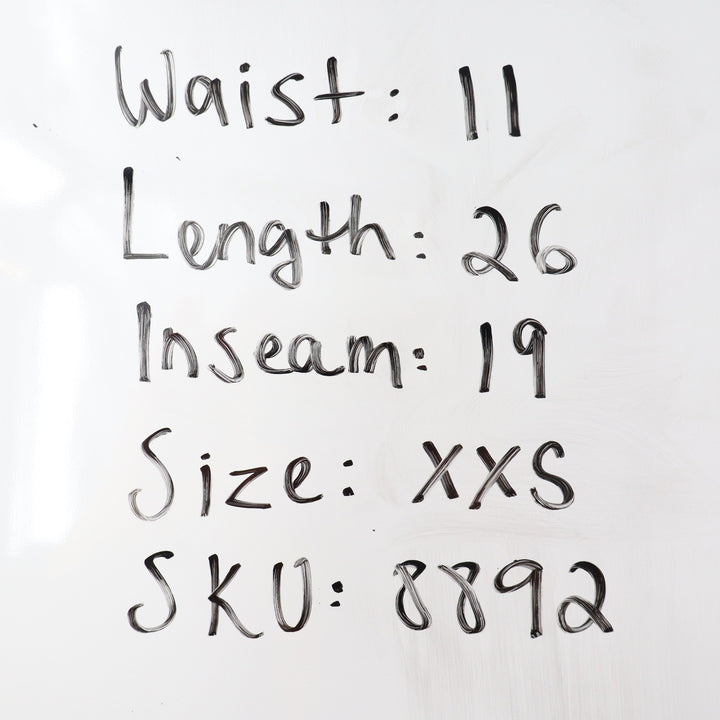 Waist: 11
Length: 26
Inseam: 19
Size: XXS
SKU: 8892